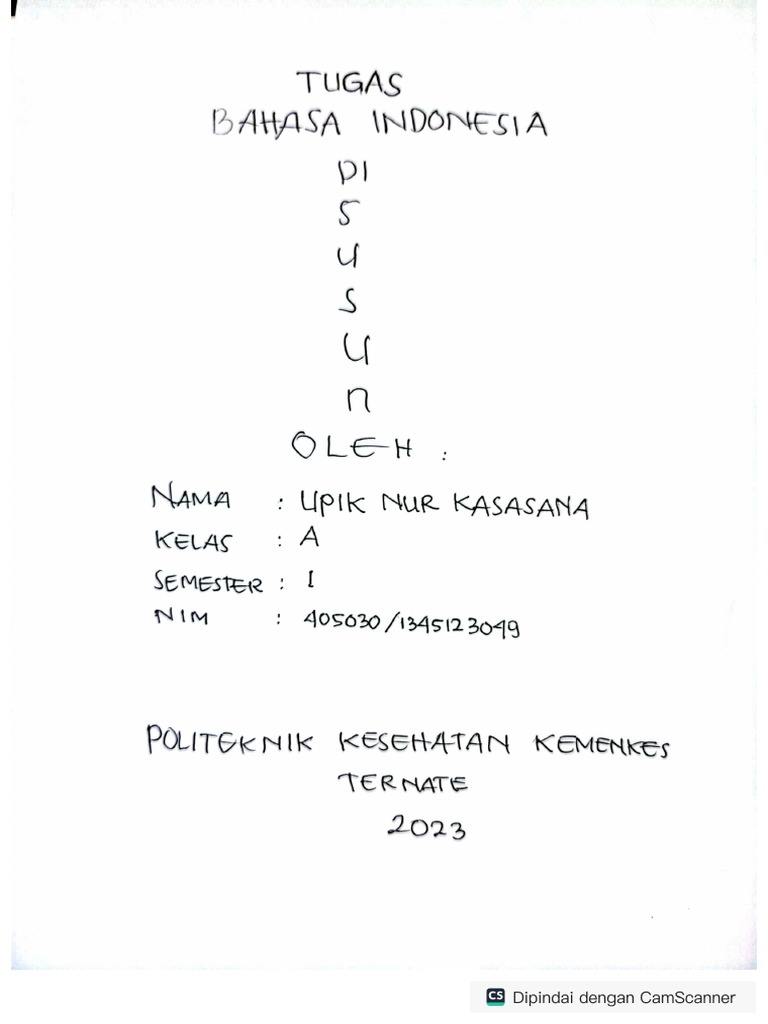 TUGAS
BAHASA INDONESIA
DI
S
U
S
U
n
OLEH :
NAMA : UPIK NUR KASASANA
KELAS : A
SEMESTER : I
NIM : 405030/1345123049
POLITEKNIK KESEHATAN KEMENKES
TERNATE
2023
CS Dipindai dengan CamScanner